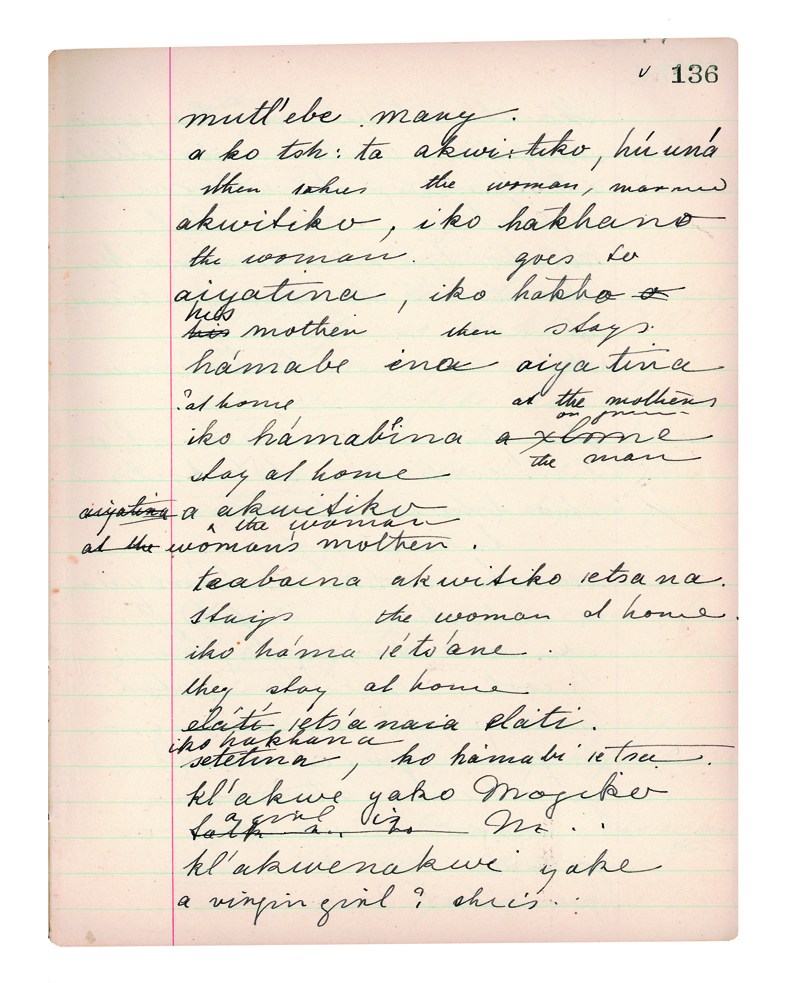 136
mutl'ebe many.
a ko tsh: ta akwi:tiko, hú uná
When the woman,
akwitiko, iko hakhano
the woman. goes to
aiyatina, iko hakho o
his
his mother then stays.
hámabe ina aiyatina
? at home at the mothers
iko hámab'ina a
stay at home the man
aiyatina a akwitiko
the woman
at the womans mother.
taabaina akwitiko ietsana.
stays the woman at home.
iko háma iéto'ane.
they stay at home
eláti iets'anaia eláti.
iko hakhana
setetina, ko hámabi ietsa.
kl'akwe yako Mogiko
a girl is
talk a.. to M...
kl'akwenakwi yake
a virgin girl? she is..